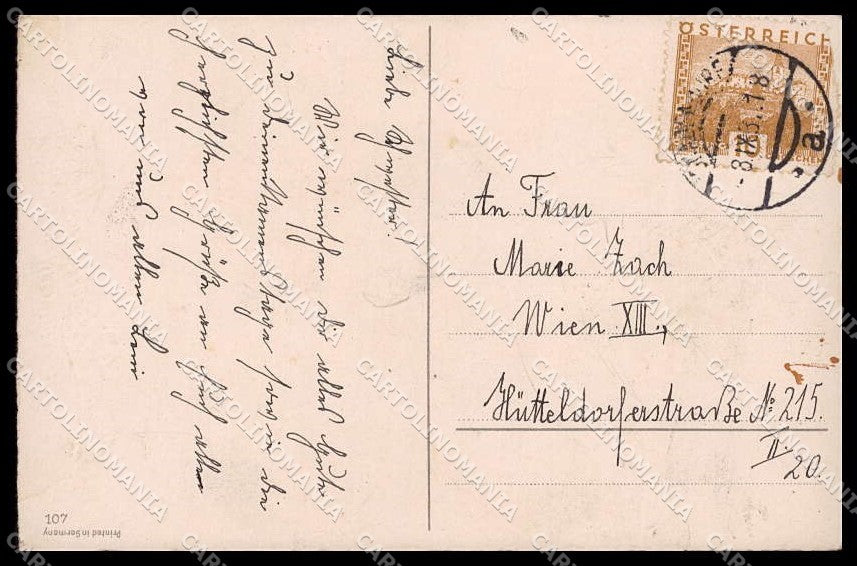 ÖSTERREICH
a
An Frau
Marie Zach
Wien XIII.,
Hütteldorferstraße № 215.
II.
20.
Wir wünschen dir alles Gute
zu deinem Namenstage sowie die
herzlichsten Grüße an Euch alle
von uns allen
107
Printed in Germany
CARTOLINOMANIA